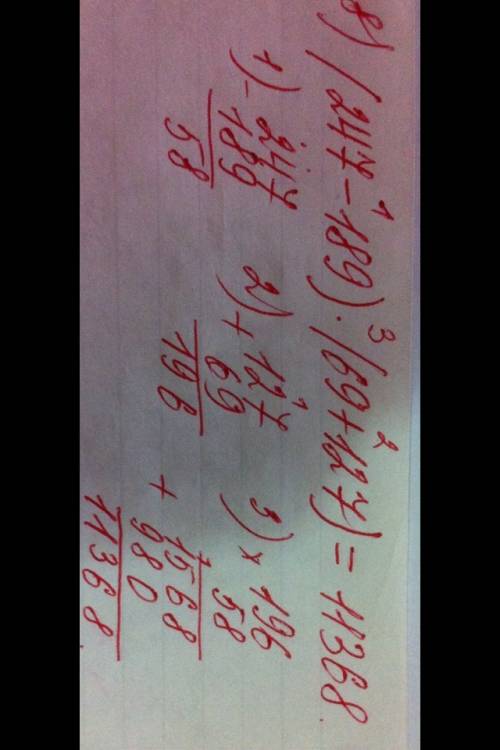 8) (247-189)·(69+127)=11368
1) - 247
189
58
2) + 127
69
196
3) × 196
58
1568
+ 980
11368